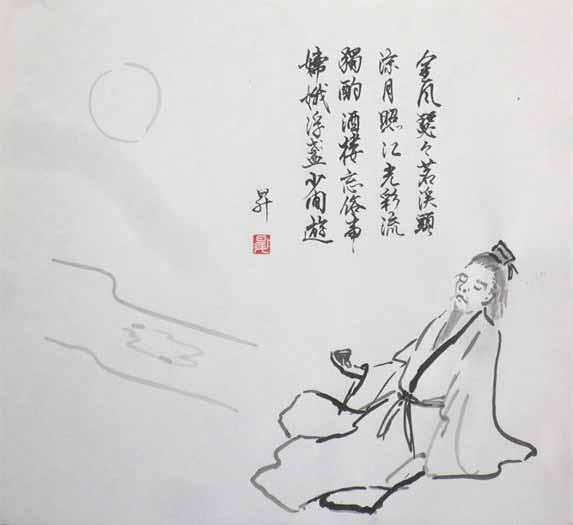 金風瑟々苕溪頭
涼月照江光彩流
獨酌酒樓忘俗事
嫦娥浮盞少間遊
昇